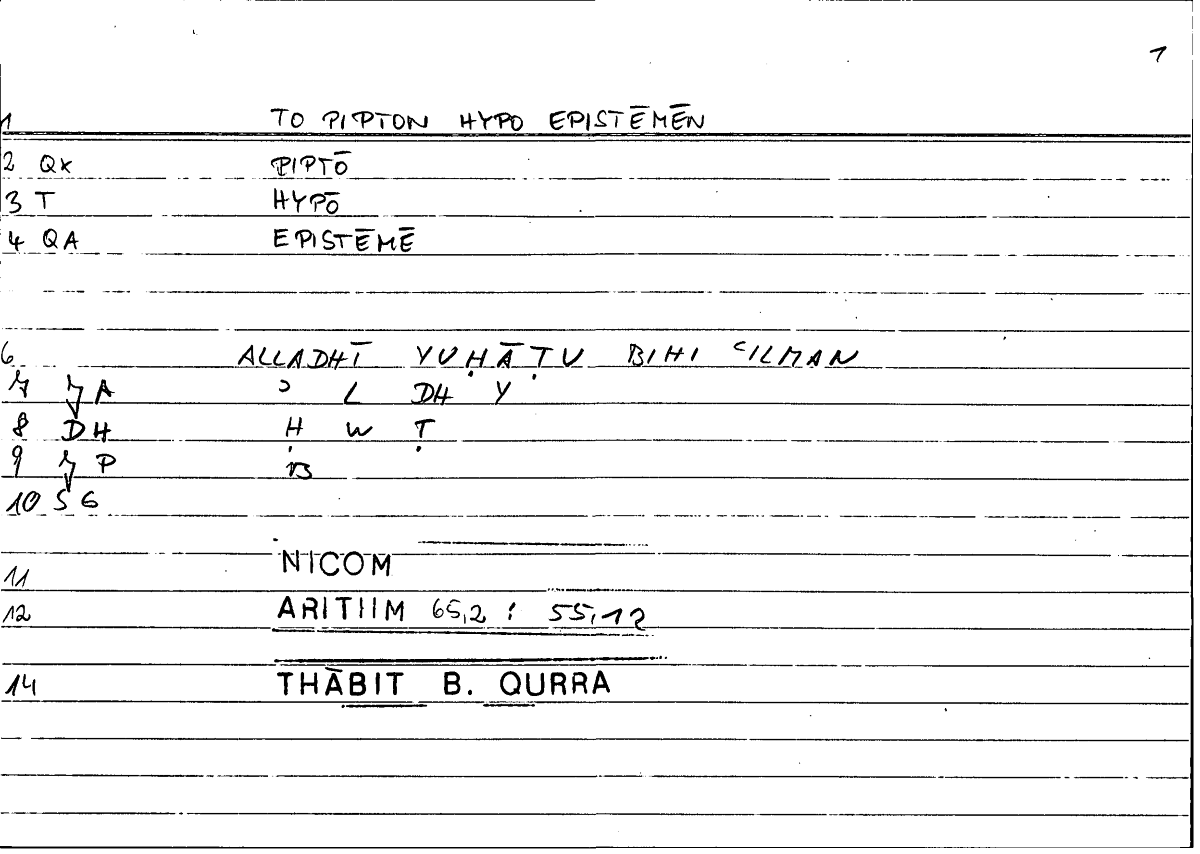 1
1 TO PIPTON HYPO EPISTĒMĒN
2 QX PIPTŌ
3 T HYPŌ
4 QA EPISTĒMĒ
6 ALLADHĪ YUḤĀṬU BIHI ʿILMAN
7 A ʾ L DH Y
8 DH Ḥ W Ṭ
9 P B
10 SG
11 NICOM
12 ARITHM 65,2 : 55,12
14 THĀBIT B. QURRA